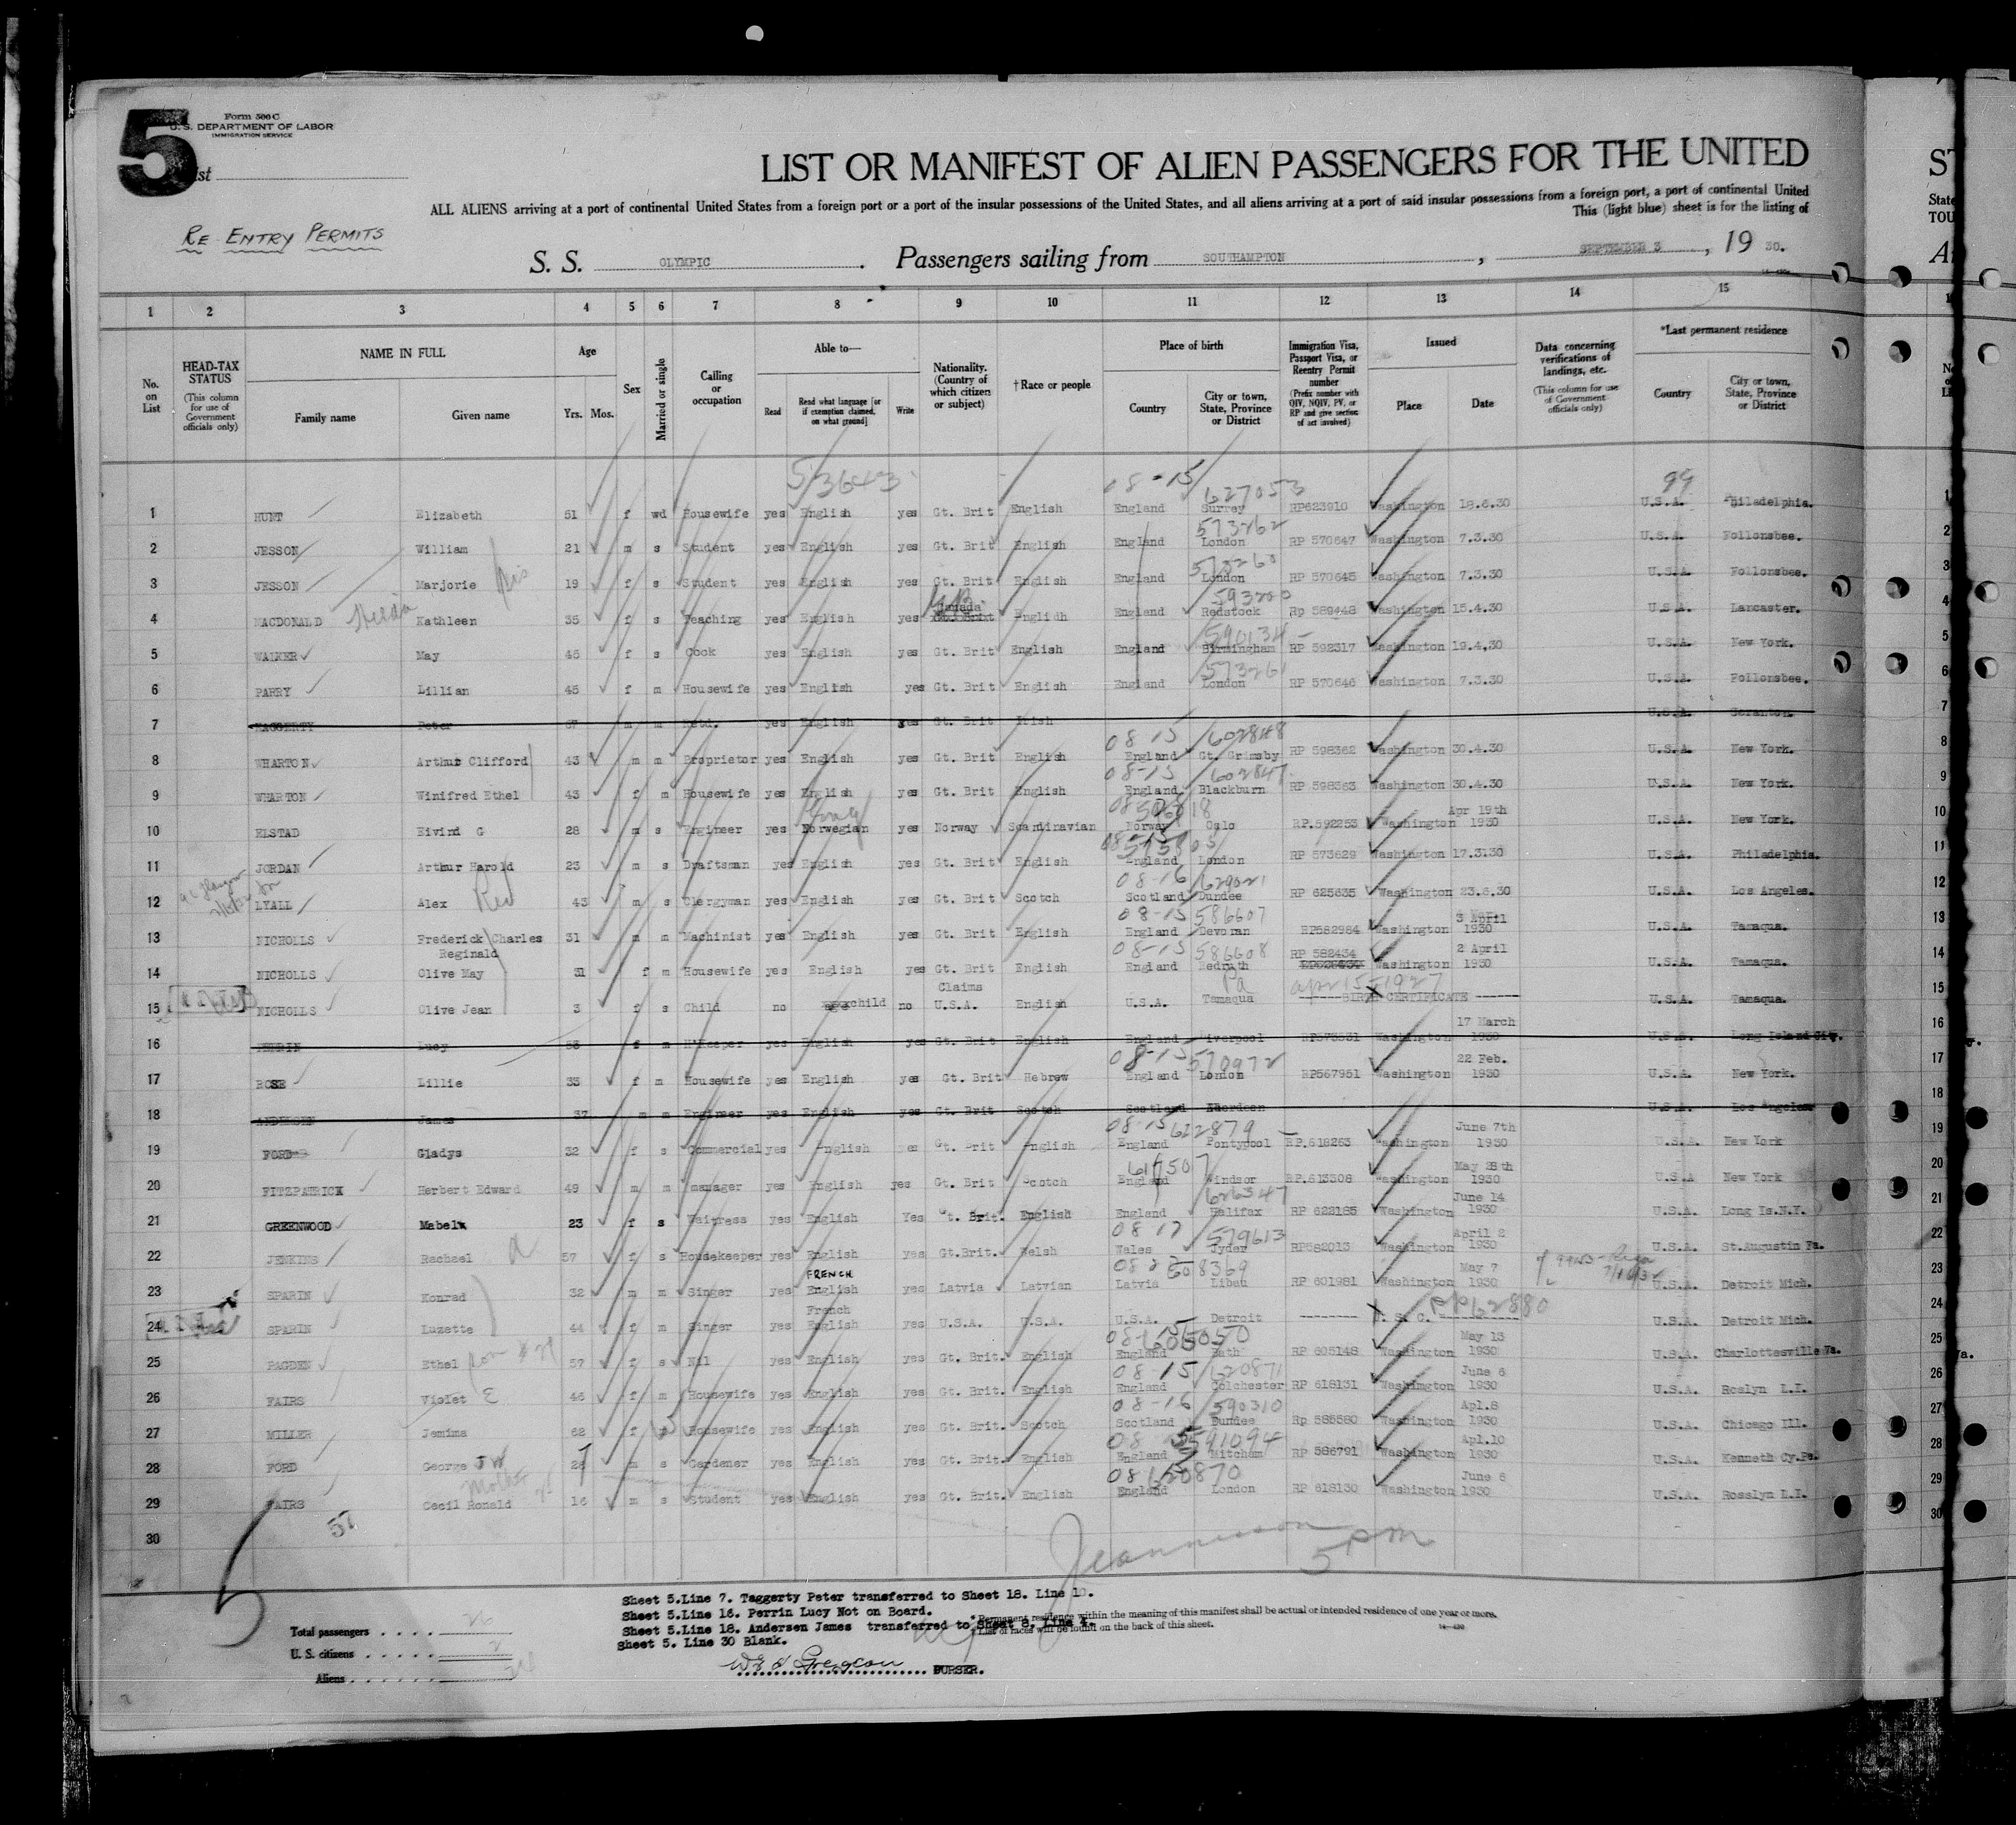 5
Form 500 C
U. S. DEPARTMENT OF LABOR
IMMIGRATION SERVICE
LIST OR MANIFEST OF ALIEN PASSENGERS FOR THE UNITED
ALL ALIENS arriving at a port of continental United States from a foreign port or a port of the insular possessions of the United States, and all aliens arriving at a port of said insular possessions from a foreign port, a port of continental United
This (light blue) sheet is for the listing of
RE ENTRY PERMITS
S. S. OLYMPIC. Passengers sailing from SOUTHAMPTON, SEPTEMBER 3, 19 30.
1 2 3 4 5 6 7 8 9 10 11 12 13 14 15
No. on List
HEAD-TAX STATUS (This column for use of Government officials only)
NAME IN FULL
Family name Given name
Age Yrs. Mos.
Sex
Married or single
Calling or occupation
Able to— Read Read what language [or if exemption claimed, on what ground] Write
Nationality. (Country of which citizen or subject)
†Race or people
Place of birth Country City or town, State, Province or District
Immigration Visa, Passport Visa, or Reentry Permit number (Prefix number with QIV, NQIV, PV, or RP and give section of act involved)
Issued Place Date
Data concerning verifications of landings, etc. (This column for use of Government officials only)
*Last permanent residence Country City or town, State, Province or District
53643 08-15 627053 99
1 HUNT Elizabeth 51 f wd Housewife yes English yes Gt. Brit English England Surrey RP623910 Washington 18.6.30 U.S.A. Philadelphia.
573262
2 JESSON William 21 m s Student yes English yes Gt. Brit English England London RP 570647 Washington 7.3.30 U.S.A. Follonsbee.
573260
3 JESSON Marjorie 19 f s Student yes English yes Gt. Brit English England London RP 570645 Washington 7.3.30 U.S.A. Follonsbee.
593200
4 MACDONALD Hilda Kathleen 35 f s Teaching yes English yes Canada Englidh England Redstock Rp 589448 Washington 15.4.30 U.S.A. Lancaster.
590134
5 WALKER May 45 f s Cook yes English yes Gt. Brit English England Birmingham RP 592317 Washington 19.4.30 U.S.A. New York.
573261
6 PARRY Lillian 45 f m Housewife yes English yes Gt. Brit English England London RP 570646 Washington 7.3.30 U.S.A. Follonsbee.
7 TAGGERTY Peter 67 m m Retd. yes English yes Gt. Brit Irish U.S.A. Scranton.
08 15 602848
8 WHARTON Arthur Clifford 43 m m Proprietor yes English yes Gt. Brit English England Gt. Grimsby RP 598362 Washington 30.4.30 U.S.A. New York.
08-15 602847
9 WHARTON Winifred Ethel 43 f m Housewife yes English yes Gt. Brit English England Blackburn RP 598363 Washington 30.4.30 U.S.A. New York.
10 ELSTAD Eivind G 28 m s Engineer yes Norwegian yes Norway Scandinavian Norway Oslo RP.592253 Washington Apr 19th 1930 U.S.A. New York.
11 JORDAN Arthur Harold 23 m s Draftsman yes English yes Gt. Brit English England London RP 573629 Washington 17.3.30 U.S.A. Philadelphia.
08-16 629021
12 LYALL Alex Rev 43 m s Clergyman yes English yes Gt. Brit Scotch Scotland Dundee RP 625635 Washington 23.6.30 U.S.A. Los Angeles.
08-15 586607
13 NICHOLLS Frederick Charles Reginald 31 m m Machinist yes English yes Gt. Brit English England Devoran RP582984 Washington 3 April 1930 U.S.A. Tamaqua.
08-15 586608
14 NICHOLLS Olive May 31 f m Housewife yes English yes Gt. Brit English England Redruth RP 582434 Washington 2 April 1930 U.S.A. Tamaqua.
Pa apr 15-1927
15 NICHOLLS Olive Jean 3 f s Child no child no Claims U.S.A. English U.S.A. Tamaqua BIRTH CERTIFICATE U.S.A. Tamaqua.
16 PERRIN Lucy 53 f m H'Keeper yes English yes Gt. Brit English England Liverpool RP573531 Washington 17 March 1930 U.S.A. Long Island City.
08-15 570972
17 ROSE Lillie 35 f m Housewife yes English yes Gt. Brit Hebrew England London RP567951 Washington 22 Feb. 1930 U.S.A. New York.
18 ANDERSEN James 37 m m Engineer yes English yes Gt. Brit Scotch Scotland Aberdeen U.S.A. Los Angeles.
08-15 622879
19 FORD Gladys 32 f s Commercial yes English yes Gt. Brit English England Pontypool RP.618263 Washington June 7th 1930 U.S.A. New York
617507
20 FITZPATRICK Herbert Edward 49 m m manager yes English yes Gt. Brit Scotch England Windsor RP.613308 Washington May 28th 1930 U.S.A New York
626347
21 GREENWOOD Mabel 23 f s Waitress yes English Yes Gt. Brit. English England Halifax RP 622185 Washington June 14 1930 U.S.A. Long Is.N.Y.
08 17 579613
22 JENKINS Rachael 57 f s Housekeeper yes English yes Gt.Brit. Welsh Wales RP582013 Washington April 2 1930 U.S.A. St.Augustin Fa.
608369
23 SPARIN Konrad 32 m m Singer yes FRENCH English yes Latvia Latvian Latvia Libau RP 601981 Washington May 7 1930 U.S.A. Detroit Mich.
24 SPARIN Luzette 44 f m Singer yes French English yes U.S.A. U.S.A. U.S.A. Detroit U. S. C. PP62880 U.S.A. Detroit Mich.
25 PAGDEN Ethel 57 f s Nil yes English yes Gt. Brit. English England Bath RP 605148 Washington May 13 1930 U.S.A. Charlottesville Va.
08-15 620871
26 FAIRS Violet E 46 f m Housewife yes English yes Gt. Brit. English England Colchester RP 618131 Washington June 6 1930 U.S.A. Roslyn L.I.
08-16 590310
27 MILLER Jemima 62 f Housewife yes English yes Gt. Brit. Scotch Scotland Dundee Rp 585580 Washington Apl.8 1930 U.S.A. Chicago Ill.
591094
28 FORD George 28 m s Gardener yes English yes Gt. Brit. English England Mitcham RP 586791 Washington Apl.10 1930 U.S.A. Kenneth Cy.Pa.
29 FAIRS Cecil Ronald 16 m s Student yes English yes Gt. Brit. English England London RP 618130 Washington June 6 1930 U.S.A. Rosslyn L.I.
30
5 pm
Sheet 5.Line 7. Taggerty Peter transferred to Sheet 18. Line 10.
Sheet 5.Line 16. Perrin Lucy Not on Board.
Sheet 5.Line 18. Andersen James transferred to Sheet 8. Line 4.
Sheet 5. Line 30 Blank.
* Permanent residence within the meaning of this manifest shall be actual or intended residence of one year or more.
† List of races will be found on the back of this sheet.
Total passengers
U. S. citizens
Aliens
PURSER.